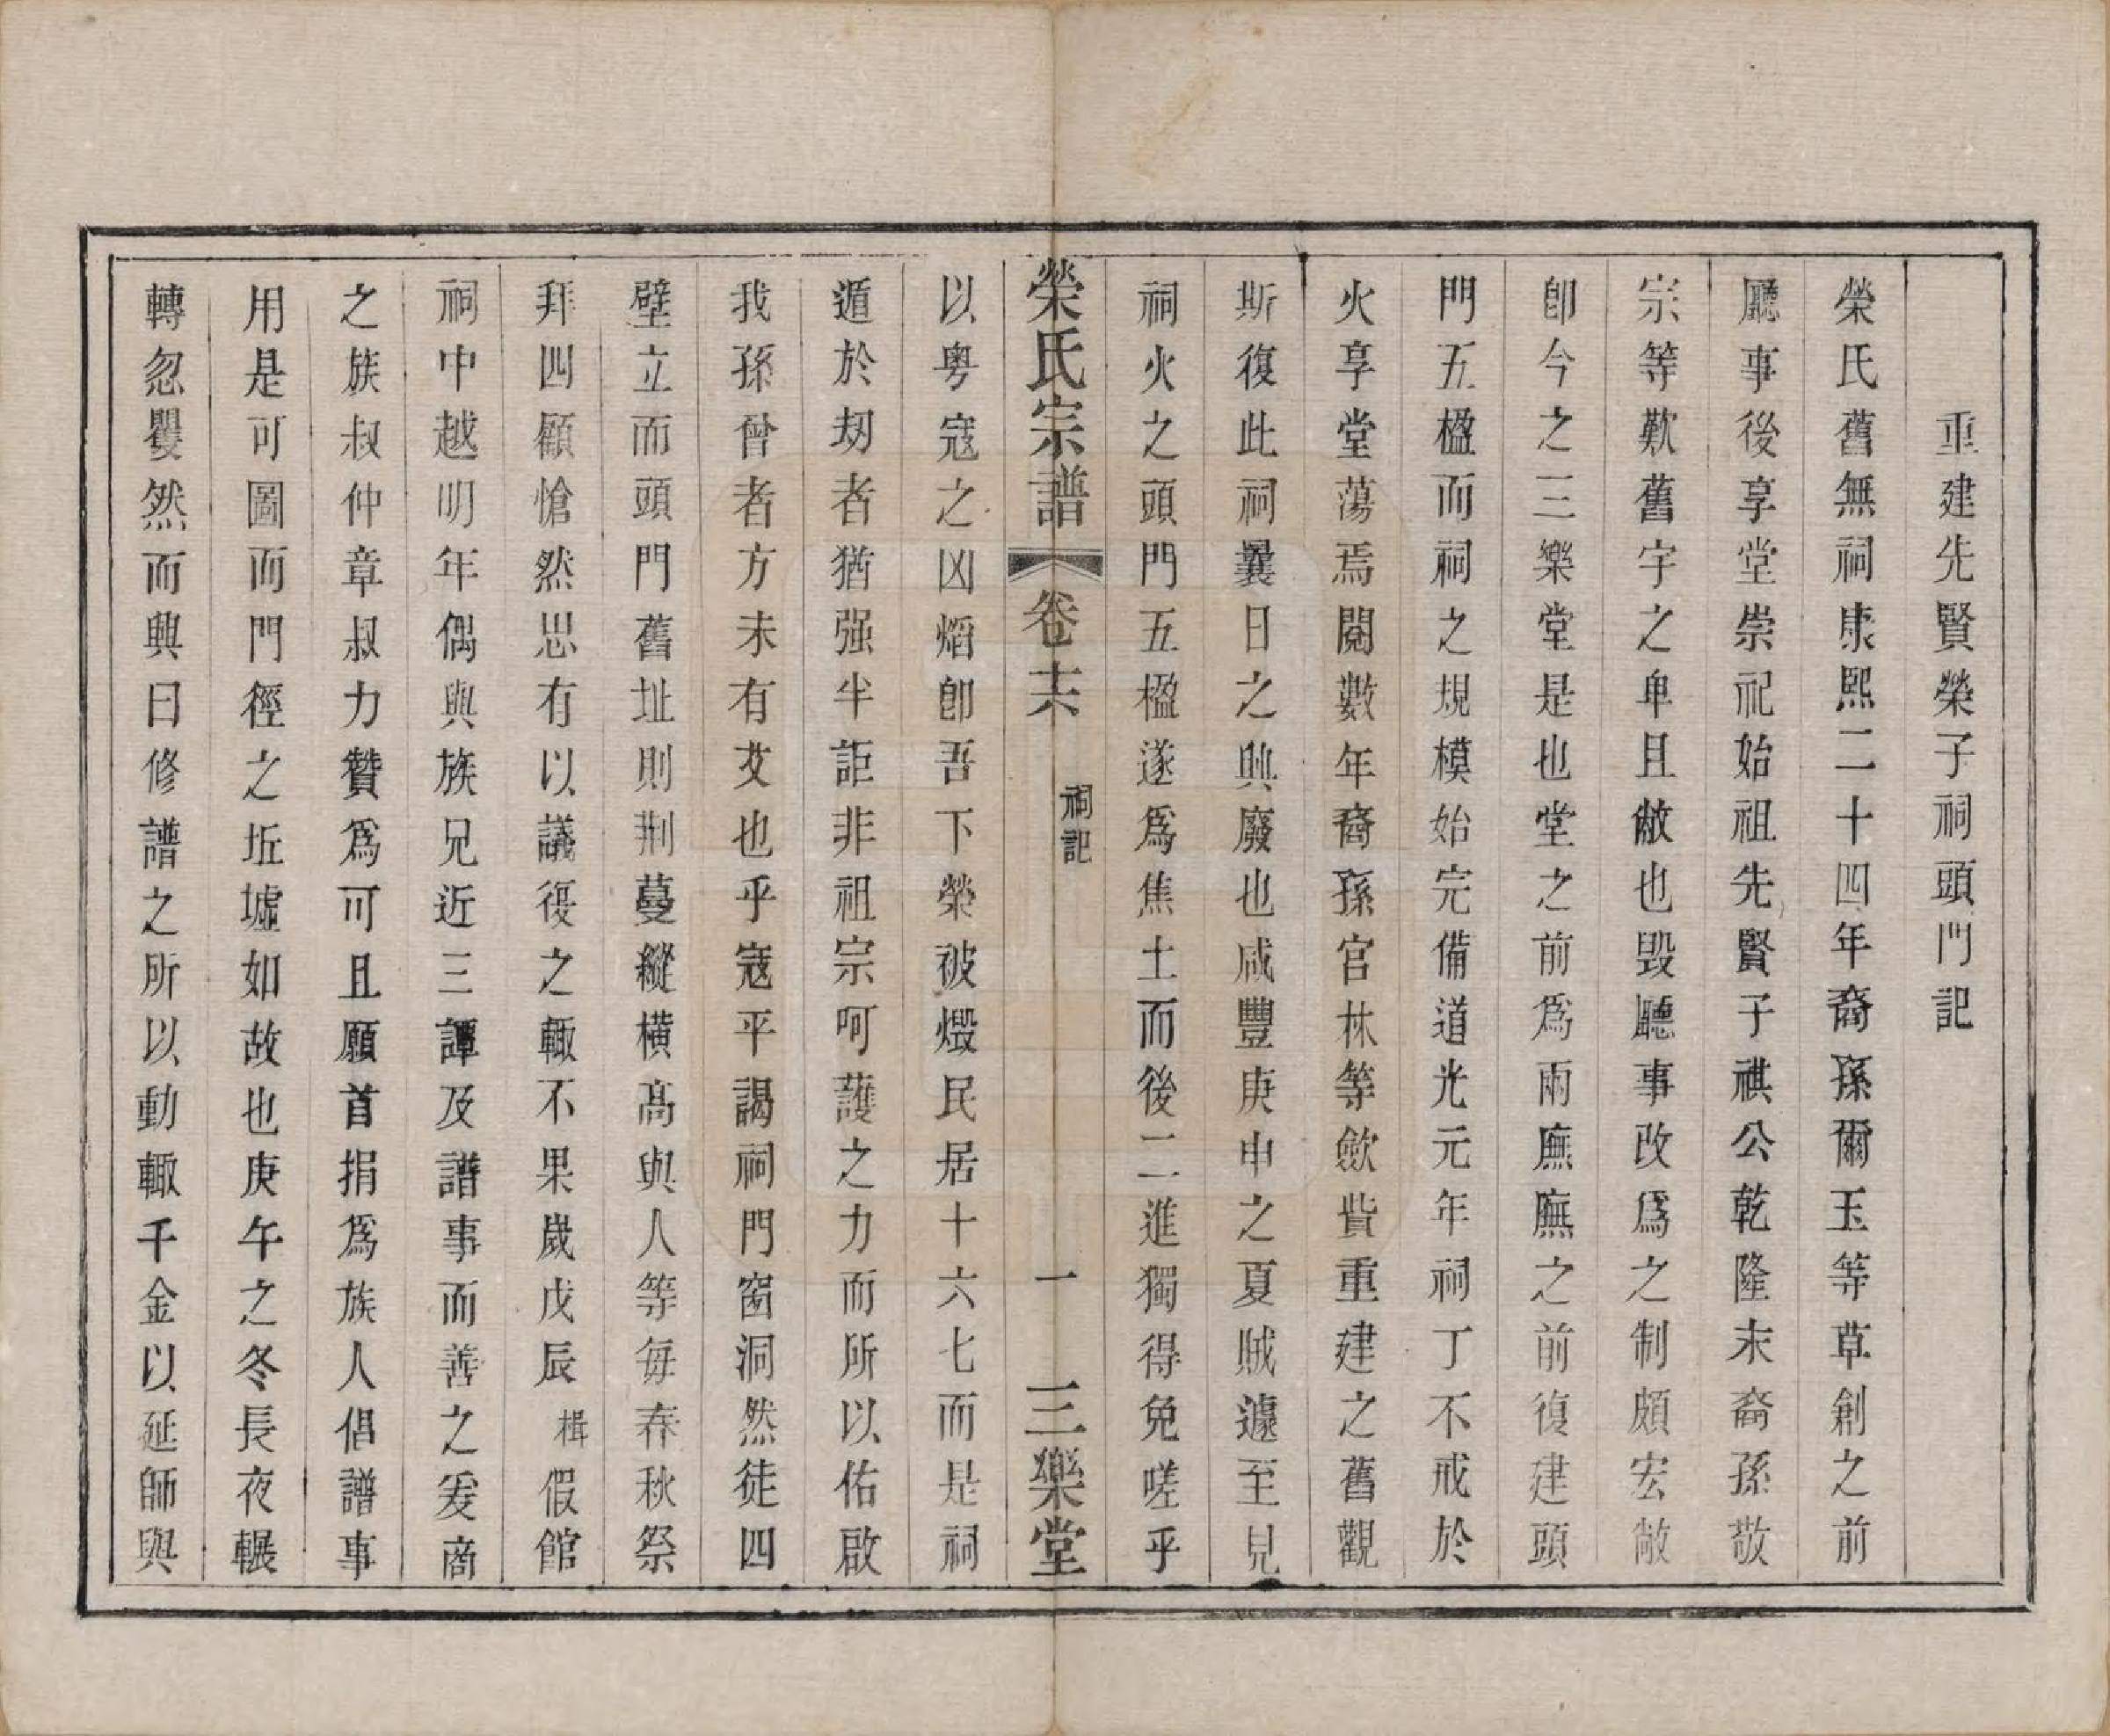 重建先賢榮子祠頭門記
榮氏舊無祠康熙二十四年裔孫爾玉等草創之前
廳事後享堂崇祀始祖先賢子祺公乾隆末裔孫敬
宗等歎舊宇之卑且敝也毀廳事改爲之制頗宏敞
卽今之三樂堂是也堂之前爲兩廡廡之前復建頭
門五楹而祠之規模始完備道光元年祠丁不戒於
火享堂蕩焉閱數年裔孫官林等歛貲重建之舊觀
斯復此祠曩日之興廢也咸豐庚申之夏賊遽至見
祠火之頭門五楹遂爲焦土而後二進獨得免嗟乎
榮氏宗譜 卷十六 祠記 一 三樂堂
以粤寇之凶燄卽吾下榮被燬民居十六七而是祠
遁於刼者猶强半詎非祖宗呵護之力而所以佑啟
我孫曾者方未有艾也乎寇平謁祠門窗洞然徒四
壁立而頭門舊址則荆蔓縱横高與人等每春秋祭
拜四顧愴然思有以議復之輒不果歲戊辰楫假館
祠中越明年偶與族兄近三譚及譜事而善之爰商
之族叔仲章叔力贊爲可且願首捐爲族人倡譜事
用是可圖而門徑之坵墟如故也庚午之冬長夜輾
轉忽矍然而興曰修譜之所以動輒千金以延師與